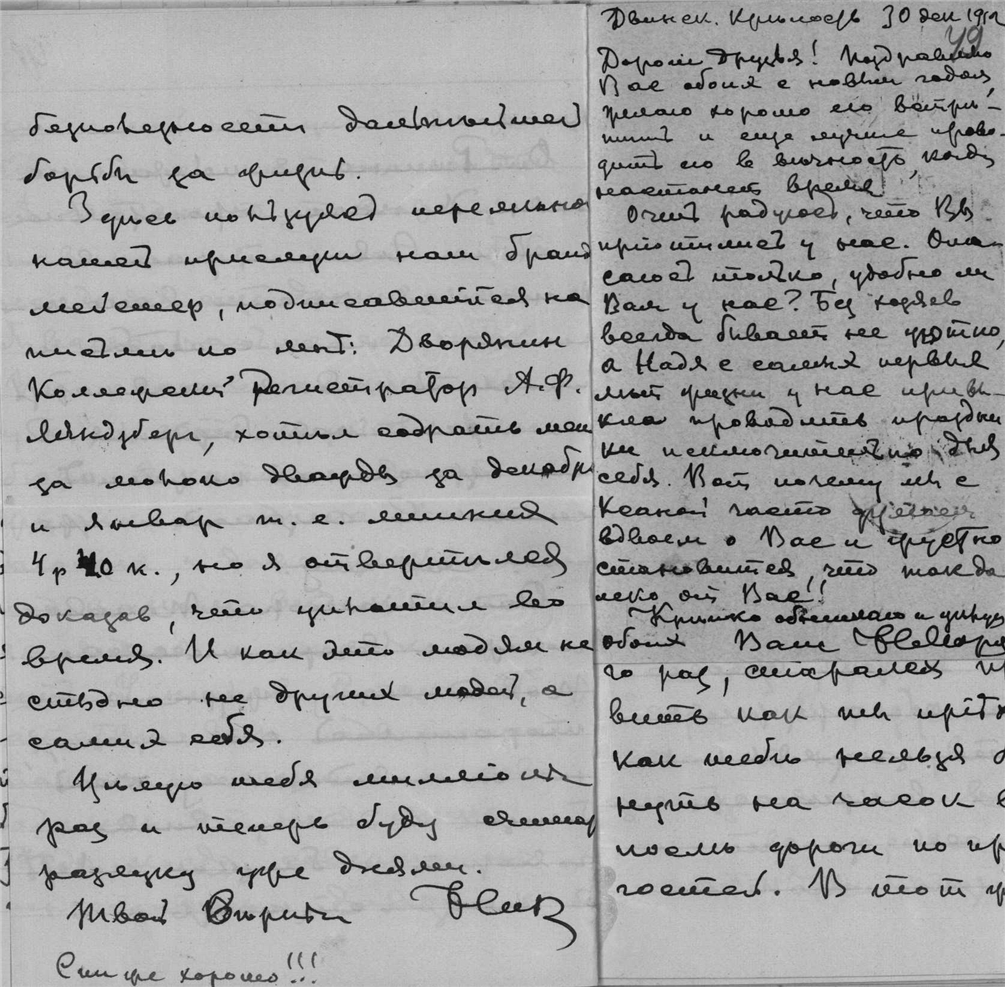 безповедности дальнѣйшей
борьбы за жизнь.
Здѣсь пользуясь
нашей прислуги наш бранд
мейстер, подписавшійся на
писамъ по мнѣ: Дворянин
Коллежскій Регистратор А.Ф.
Ляндзберг, хотѣл содрать
за молоко дважды за декабрь
и январ т.е. лишнія
4 р 40 к., но я отвертѣлся
доказав, что
время. И как это людям не
стыдно не других людей, а
самих себя.
Цѣлую тебя милліон
раз и теперь буду считат
разлуку уже днями.
Твой Вѣрный
Спи же хорошо!!!
Двинск. Крѣпость 30 дек 191
49
Дорогіе Друзья! Поздравляю
Вас обоих с новым годом,
желаю хорошо его встрѣ-
тить и еще лучше прово-
дить его в вѣчность, когда
настанет время
Очень радуюсь, что Вы
пріютились у нас. Опа
саюсь только, удобно ли
Вам у нас? Без хозяев
всегда бывает не уютно,
а Надя с самых первых
лѣт жизни у нас привы
кла проводить праздни
ки исключительно для
себя. Вот почему мы с
Ксаной часто
вдвоем о Вас и грустно
становится, что так да
леко от Вас!!
Крѣпко обнимаю и цѣлую
обоих Ваш
го раз, старался
вить как
как тебѣ нельзя
нуть на часок
послѣ дороги по пр
гостей. В тот